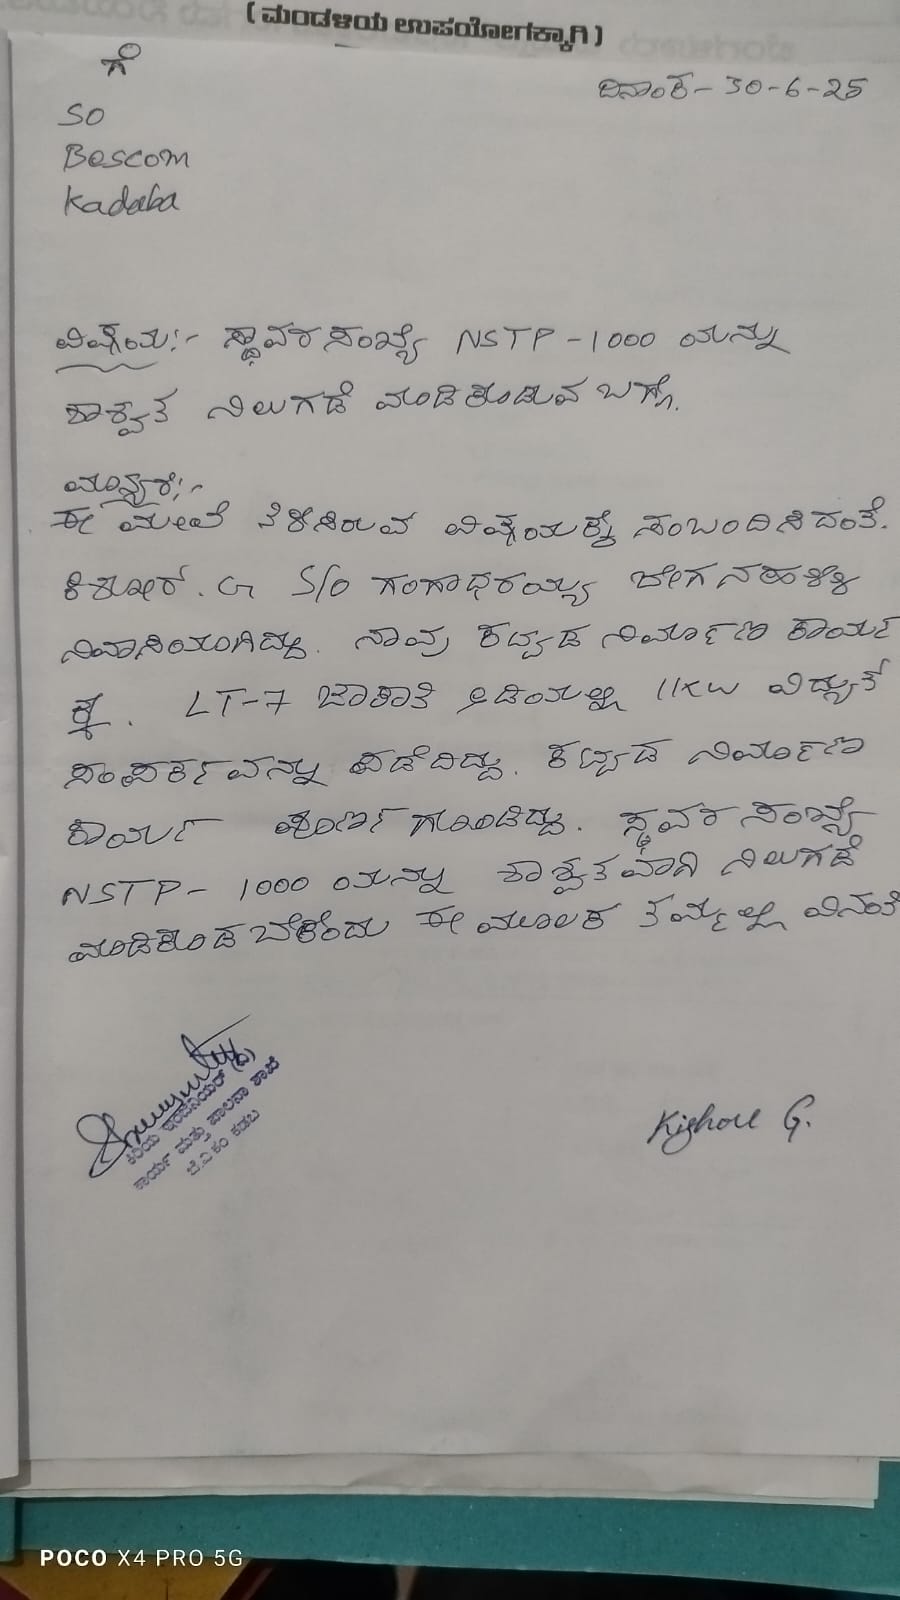 ( ಮಂಡಳಿಯ ಉಪಯೋಗಕ್ಕಾಗಿ )
ಗೆ
ದಿನಾಂಕ - 30-6-25
SO
Bescom
Kadaba
ವಿಷಯ:- ಸ್ಥಾವರ ಸಂಖ್ಯೆ NSTP -1000 ಯನ್ನು
ಶಾಶ್ವತ ನಿಲುಗಡೆ ಮಾಡಿಕೊಡುವ ಬಗ್ಗೆ.
ಮಾನ್ಯರೆ:-
ಈ ಮೇಲೆ ತಿಳಿಸಿರುವ ವಿಷಯಕ್ಕೆ ಸಂಬಂದಿಸಿದಂತೆ.
ಕಿಶೋರ್. G S/o ಗಂಗಾಧರಯ್ಯ ಜೇಗನಹಳ್ಳಿ
ನಿವಾಸಿಯಾಗಿದ್ದು. ನಾವು ಕಟ್ಟಡ ನಿರ್ಮಾಣ ಕಾರ್ಯ
ಕ್ಕೆ. LT-7 ಜಾಕಾತಿ ಅಡಿಯಲ್ಲಿ 11KW ವಿದ್ಯುತ್
ಸಂಪರ್ಕವನ್ನು ಪಡೆದಿದ್ದು. ಕಟ್ಟಡ ನಿರ್ಮಾಣ
ಕಾರ್ಯ ಪೂರ್ಣಗೊಂಡಿದ್ದು. ಸ್ಥವರ ಸಂಖ್ಯೆ
NSTP- 1000 ಯನ್ನು ಶಾಶ್ವತವಾಗಿ ನಿಲುಗಡೆ
ಮಾಡಿಕೊಡಬೇಕೆಂದು ಈ ಮೂಲಕ ತಮ್ಮಲ್ಲಿ ವಿನಂತಿ
ಕಿರಿಯ ಇಂಜಿನಿಯರ್ (ವಿ)
ಕಾರ್ಯ ಮತ್ತು ಪಾಲನಾ ಶಾಖೆ
ಬೆ.ವಿ.ಕಂ ಕಡಬ
Kishore G.
POCO X4 PRO 5G